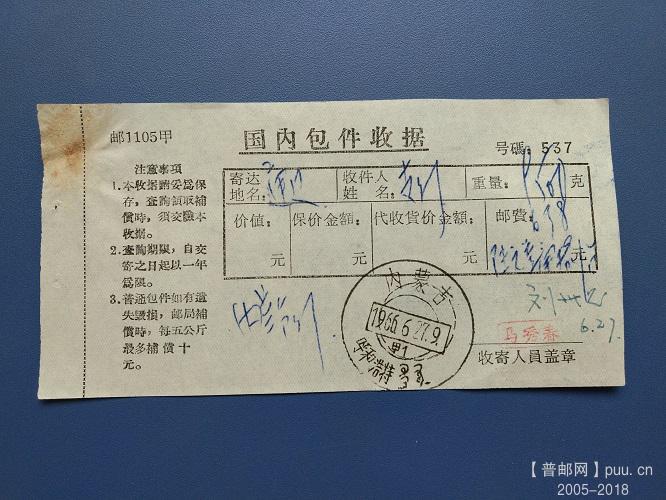 邮1105甲
国内包件收据
号碼：537
注意事项
1.本收据請妥爲保
存，查詢領取補
償時，須交驗本
收据。
2.查詢期限，自交
寄之日起以一年
爲限。
3.普通包件如有遺
失毀損，邮局補
償時，每五公斤
最多補償十
元。
寄达
地名：
收件人
姓名：
重量： 克
价值： 元
保价金額： 元
代收貨价金額： 元
邮费： 638 元
内蒙古
1966.6.27.9
呼和浩特
6.27.
马秀春
收寄人员盖章
【普邮网】puu.cn
2005-2018